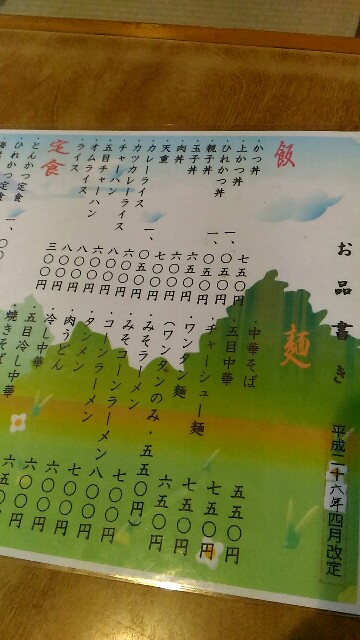 お品書き 平成二十六年四月改定
飯
・かつ丼 七五〇円
・上かつ丼 一、〇五〇円
・ひれかつ丼 一、〇五〇円
・親子丼 六〇〇円
・玉子丼 六〇〇円
・肉丼 七〇〇円
・天重 一、〇五〇円
・カレーライス 六〇〇円
・カツカレーライス 八〇〇円
・チャーハン 六〇〇円
・五目チャーハン 八〇〇円
・オムライス 八〇〇円
・ライス 三〇〇円
定食
・とんかつ定食
・ひれかつ定食 一、〇〇
麺
・中華そば 五五〇円
・五目中華 七五〇円
・チャーシュー麺 七五〇円
・ワンタン麺 六五〇円
(ワンタンのみ・五五〇円)
・みそラーメン 七〇〇円
・みそコーンラーメン 八〇〇円
・コーンラーメン 七〇〇円
・タンメン 六〇〇円
・肉うどん 六〇〇円
・冷し中華 六五〇円
・五目冷し中華
・焼きそば